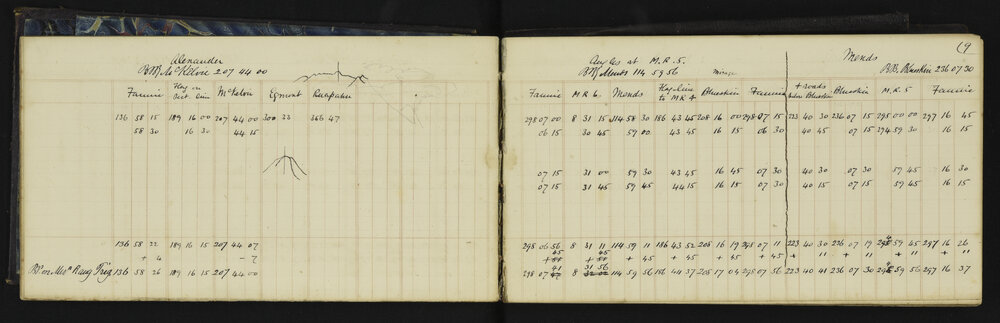 Alexander
B.M. McKelvie 207 44 00
Fannie Flag on McKelvie Egmont Ruapehu
136 58 15 189 16 00 207 44 00 300 33 366 47
58 30 16 30 44 15
136 58 22 189 16 15 207 44 07
+ 4 - 7
Trig 136 58 26 189 16 15 207 44 00
(9
Angles at M.R.5.
B.M. Monds 114 59 56
Fannie M R 6. Monds Flag Line to M R 4 Blueskin Fannie
298 07 00 8 31 15 114 58 30 186 43 45 208 16 00 298 07 15
06 15 30 45 59 00 43 45 16 15 06 30
07 15 31 00 59 30 43 45 16 45 07 30
07 15 31 45 59 45 44 15 16 15 07 30
298 06 56 8 31 11 114 59 11 186 43 52 208 16 19 298 07 11
45 45
+ + + 45 + 45 + 45 + 45
41 31 56
298 07 8 114 59 56 186 44 37 208 17 04 298 07 56
Monds
B.M. Blueskin 236 07 30
Blueskin Blueskin M.R. 5 Fannie
223 40 30 236 07 15 295 00 00 297 16 45
40 45 07 15 294 59 30 16 15
40 30 07 30 59 45 16 30
40 15 07 15 59 45 16 15
223 40 30 236 07 19 294 59 45 297 16 26
+ 11 + 11 + 11 + 11
223 40 41 236 07 30 294 59 56 297 16 37